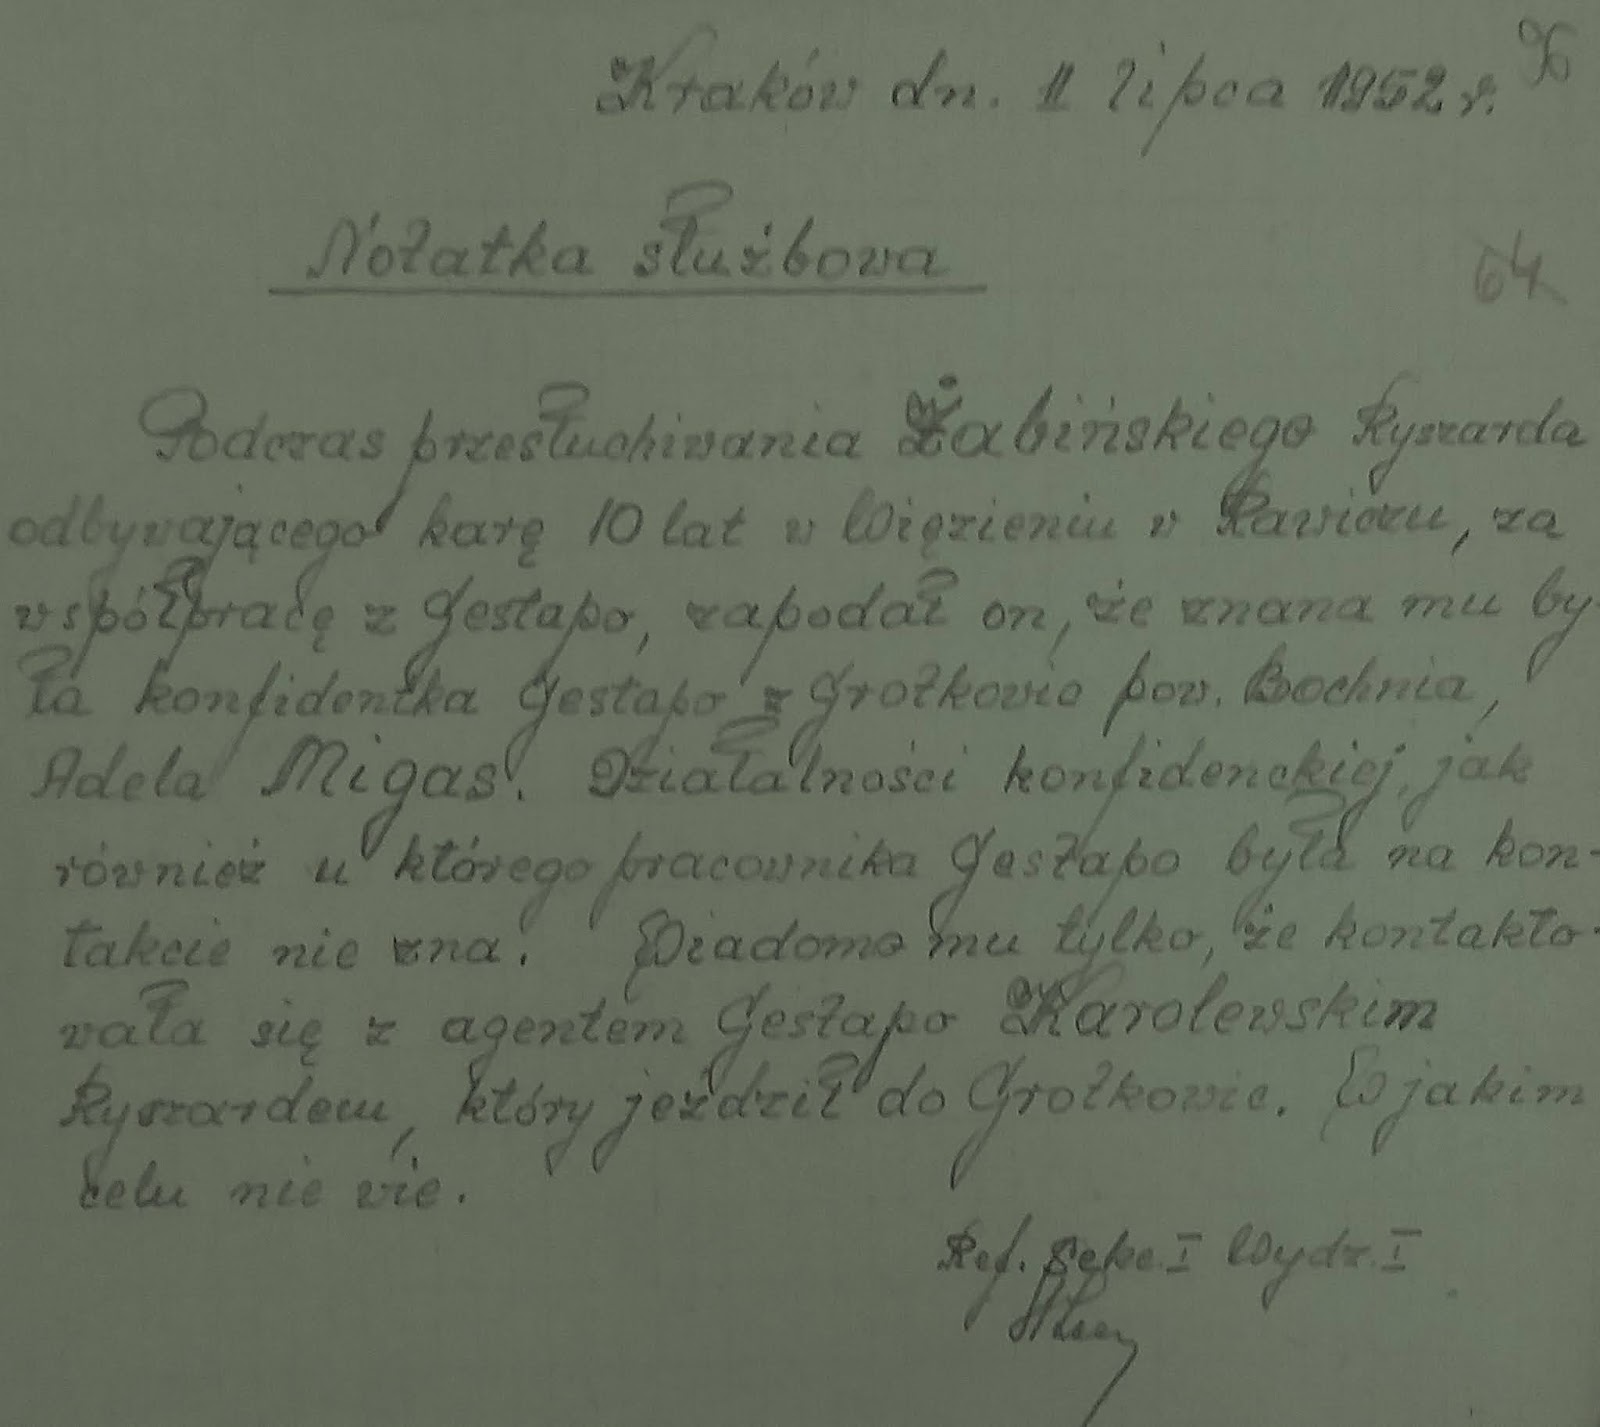 96
Kraków dn. 11 lipca 1952 r.
Notatka służbowa
64
Podczas przesłuchiwania Żabińskiego Ryszarda
odbywającego karę 10 lat w Więzieniu w Rawiczu, za
współpracę z Gestapo, zapodał on, że znana mu by-
ła konfidentka Gestapo z Grotkowic pow. Bochnia,
Adela Migas. Działalności konfidenckiej, jak
również u którego pracownika Gestapo była na kon-
takcie nie zna. Wiadomo mu tylko, że kontakto-
wała się z agentem Gestapo Karolewskim
Ryszardem, który jeździł do Grotkowic. W jakim
celu nie wie.
Ref. Sekc. I Wydz. I